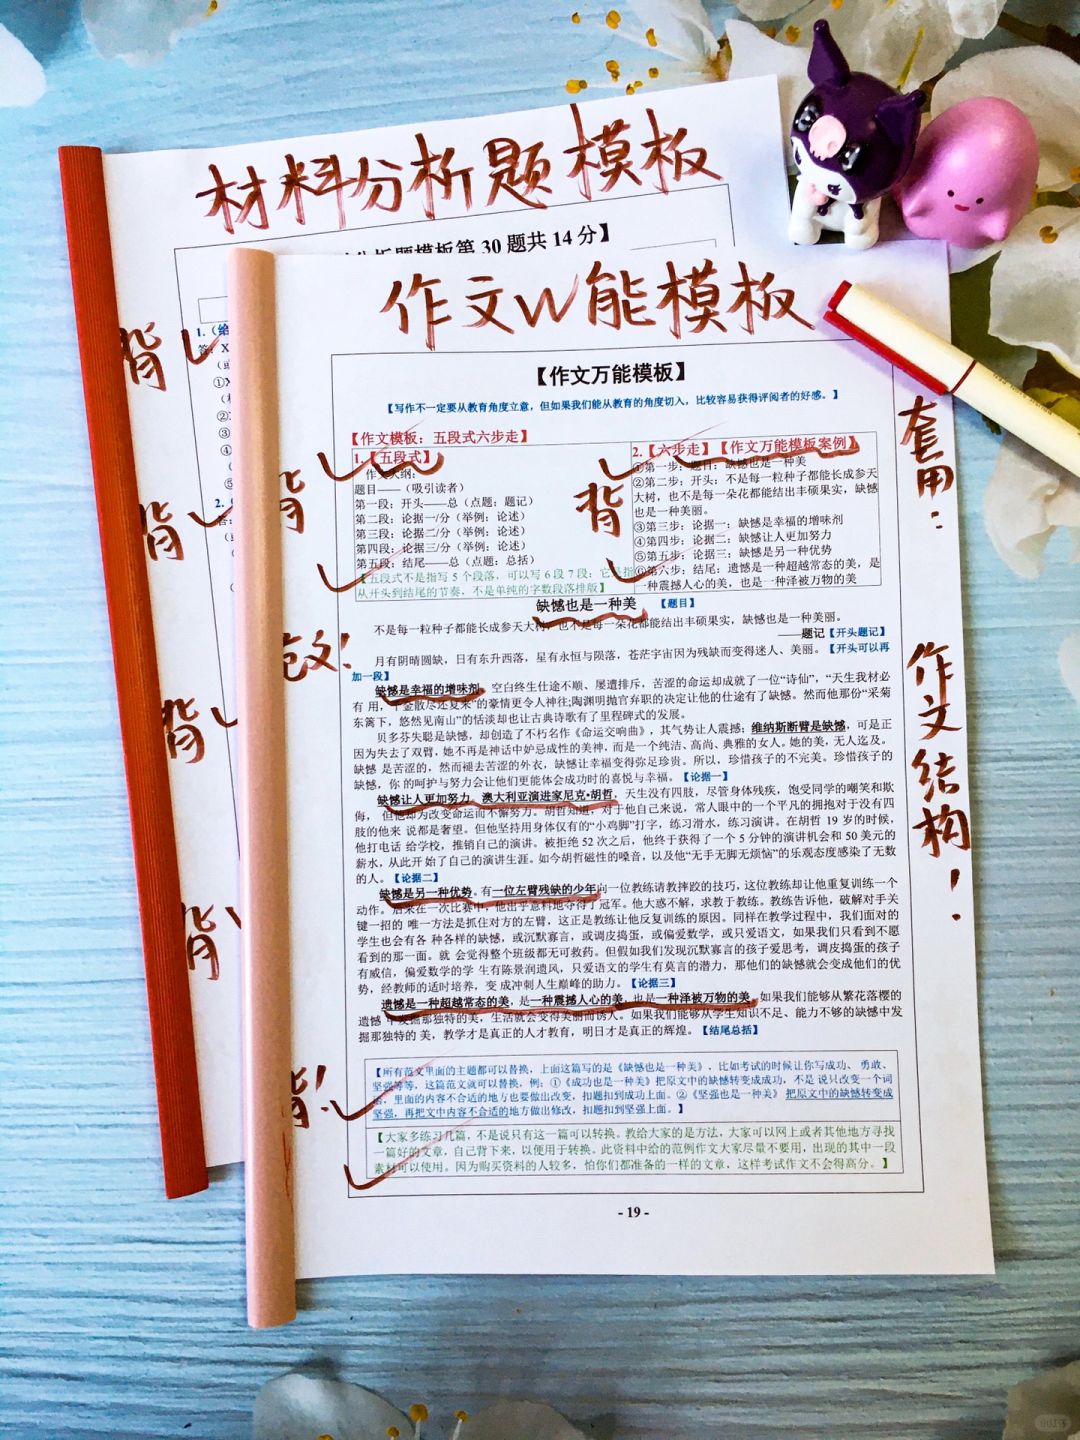 材料分析题模板
析题模板第30题共14分】
1.（给
答：X
2.
背
背
背
背
作文W能模板
【作文万能模板】
【写作不一定要从教育角度立意，但如果我们能从教育的角度切入，比较容易获得评阅者的好感。】
【作文模板：五段式六步走】
1.【五段式】
作文大纲：
题目——（吸引读者）
第一段：开头——总（点题；题记）
第二段：论据一/分（举例；论述）
第三段：论据二/分（举例；论述）
第四段：论据三/分（举例；论述）
第五段：结尾——总（点题；总括）
【五段式不是指写5个段落，可以写6段7段；它是指
从开头到结尾的节奏，不是单纯的字数段落排版】
2.【六步走】【作文万能模板案例】
①第一步：题目：缺憾也是一种美
②第二步：开头：不是每一粒种子都能长成参天
大树，也不是每一朵花都能结出丰硕果实，缺憾
也是一种美丽。
③第三步：论据一：缺憾是幸福的增味剂
④第四步：论据二：缺憾让人更加努力
⑤第五步：论据三：缺憾是另一种优势
⑥第六步：结尾：遗憾是一种超越常态的美，是
一种震撼人心的美，也是一种泽被万物的美
背
背
套用：
缺憾也是一种美 【题目】
不是每一粒种子都能长成参天大树，也不是每一朵花都能结出丰硕果实，缺憾也是一种美丽。
——题记【开头题记】
月有阴晴圆缺，日有东升西落，星有永恒与陨落，苍茫宇宙因为残缺而变得迷人、美丽。【开头可以再
加一段】
范文！
缺憾是幸福的增味剂。空白终生仕途不顺、屡遭排斥，苦涩的命运却成就了一位“诗仙”，“天生我材必
有 用，千金散尽还复来”的豪情更令人神往;陶渊明抛官弃职的决定让他的仕途有了缺憾。然而他那份“采菊
东篱下，悠然见南山”的恬淡却也让古典诗歌有了里程碑式的发展。
贝多芬失聪是缺憾，却创造了不朽名作《命运交响曲》，其气势让人震撼；维纳斯断臂是缺憾，可是正
因为失去了双臂，她不再是神话中妒忌成性的美神，而是一个纯洁、高尚、典雅的女人。她的美，无人迄及。
缺憾 是苦涩的，然而褪去苦涩的外衣，缺憾让幸福变得弥足珍贵。所以，珍惜孩子的不完美。珍惜孩子的
缺憾，你 的呵护与努力会让他们更能体会成功时的喜悦与幸福。【论据一】
缺憾让人更加努力。澳大利亚演进家尼克•胡哲，天生没有四肢，尽管身体残疾，饱受同学的嘲笑和欺
侮， 但他却为改变命运而不懈努力。胡哲知道，对于他自己来说，常人眼中的一个平凡的拥抱对于没有四
肢的他来 说都是奢望。但他坚持用身体仅有的“小鸡脚”打字，练习滑水，练习演讲。在胡哲 19 岁的时候，
他打电话 给学校，推销自己的演讲。被拒绝 52 次之后，他终于获得了一个 5 分钟的演讲机会和 50 美元的
薪水，从此开 始了自己的演讲生涯。如今胡哲磁性的嗓音，以及他“无手无脚无烦恼”的乐观态度感染了无数
的人。【论据二】
缺憾是另一种优势。有一位左臂残缺的少年向一位教练请教摔跤的技巧，这位教练却让他重复训练一个
动作。后来在一次比赛中，他出乎意料地夺得了冠军。他大惑不解，求教于教练。教练告诉他，破解对手关
键一招的 唯一方法是抓住对方的左臂，这正是教练让他反复训练的原因。同样在教学过程中，我们面对的
学生也会有各 种各样的缺憾，或沉默寡言，或调皮捣蛋，或偏爱数学，或只爱语文，如果我们只看到不愿
看到的那一面。就 会觉得整个班级都无可救药。但假如我们发现沉默寡言的孩子爱思考，调皮捣蛋的孩子
有威信，偏爱数学的学 生有陈景润遗风，只爱语文的学生有莫言的潜力，那他们的缺憾就会变成他们的优
势，经教师的适时培养，变 成冲刺人生巅峰的助力。【论据三】
遗憾是一种超越常态的美，是一种震撼人心的美，也是一种泽被万物的美。如果我们能够从繁花落樱的
遗憾 中发掘那独特的美，生活就会变得美丽而诱人。如果我们能够从学生知识不足、能力不够的缺憾中发
掘那独特的 美，教学才是真正的人才教育，明日才是真正的辉煌。【结尾总括】
作文结构！
【所有范文里面的主题都可以替换，上面这篇写的是《缺憾也是一种美》，比如考试的时候让你写成功、勇敢、
坚强等等，这篇范文就可以替换，例：①《成功也是一种美》把原文中的缺憾转变成成功，不是 说只改变一个词
语，里面的内容不合适的地方也要做出改变，扣题扣到成功上面。②《坚强也是一种美》 把原文中的缺憾转变成
坚强，再把文中内容不合适的地方做出修改，扣题扣到坚强上面。】
背！
【大家多练习几篇，不是说只有这一篇可以转换。教给大家的是方法，大家可以网上或者其他地方寻找
一篇好的文章，自己背下来，以便用于转换。此资料中给的范例作文大家尽量不要用，出现的其中一段
素材可以使用。因为购买资料的人较多，怕你们都准备的一样的文章，这样考试作文不会得高分。】
- 19 -